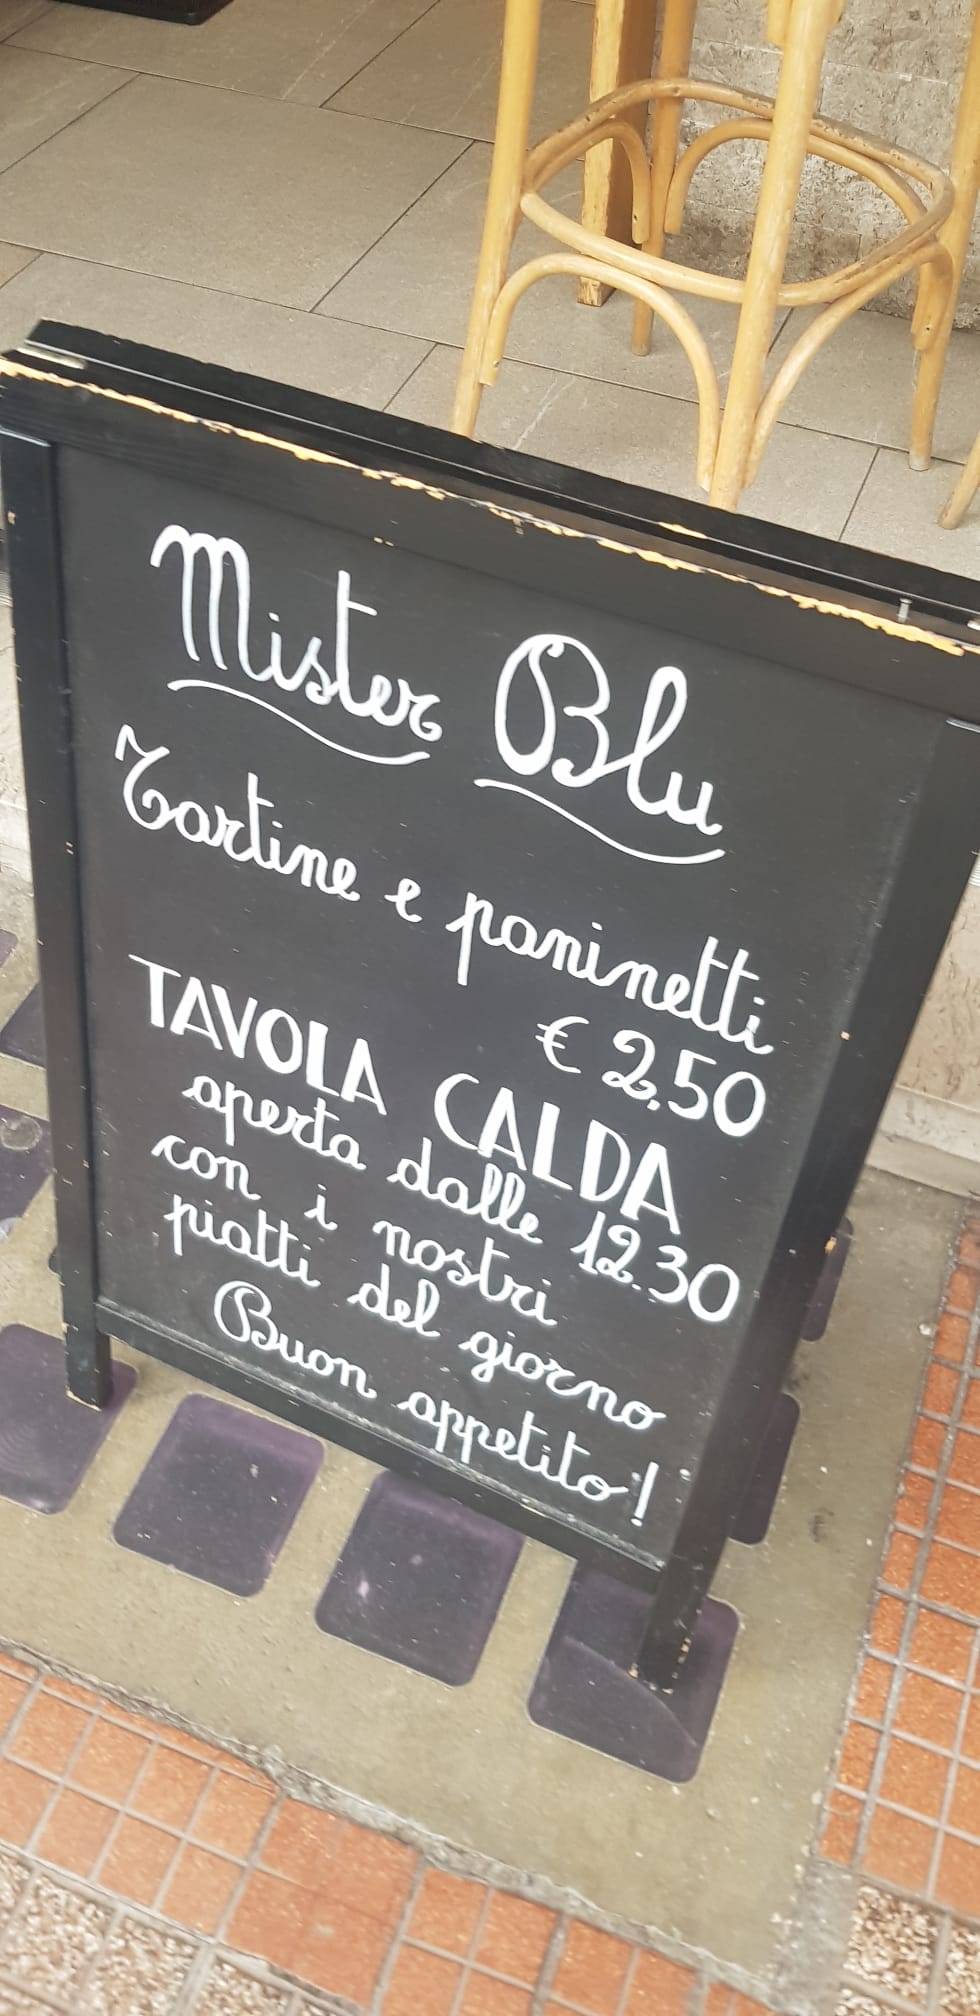 Mister Blu
Tartine e paninetti
€ 2,50
TAVOLA CALDA
aperta dalle 12.30
con i nostri
piatti del giorno
Buon appetito!